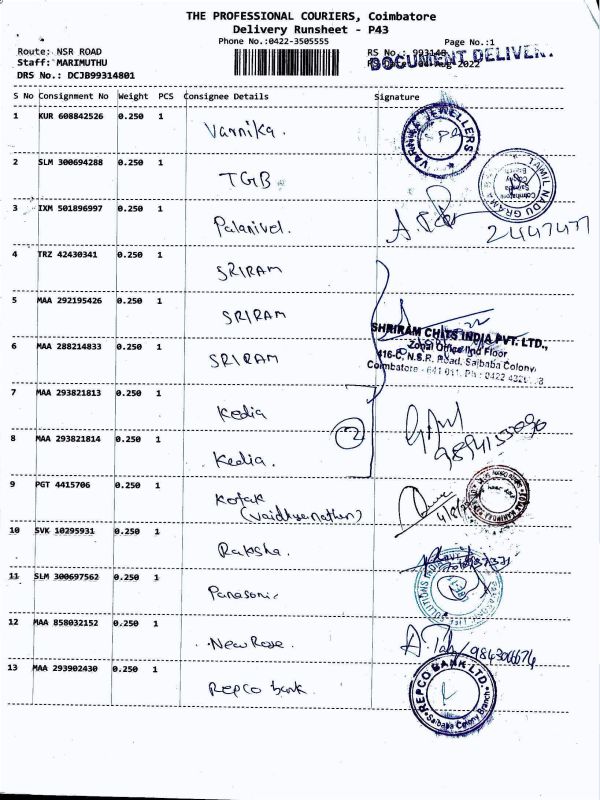 THE PROFESSIONAL COURIERS, Coimbatore
Delivery Runsheet - P43
Phone No.:0422-3505555
Page No.:1
Route: NSR ROAD
RS No.: 993148
Staff: MARIMUTHU
Aug 2022
DOCUMENT DELIVERY
DRS No.: DCJB99314801
S No Consignment No Weight PCS Consignee Details Signature
1 KUR 608842526 0.250 1 Varnika.
VARNIKA JEWELLERS
2 SLM 300694288 0.250 1 TGB
TAMIL NADU GRAMA
3 IXM 501896997 0.250 1 Palanivel.
4 TRZ 42430341 0.250 1 SRIRAM
5 MAA 292195426 0.250 1 SRIRAM
SHRIRAM CHITS INDIA PVT. LTD.,
Zonal Office IInd Floor
6 MAA 288214833 0.250 1 SRIRAM
416-C, N.S.R. Road, Saibaba Colony
Coimbatore - 641 011. Ph : 0422
7 MAA 293821813 0.250 1 Kedia
2
8 MAA 293821814 0.250 1 Kedia.
9 PGT 4415706 0.250 1 Kotak
(Vaidhyanathan)
10 SVK 10295931 0.250 1 Raksha.
11 SLM 300697562 0.250 1 Panasonic
SOLUTIONS INDIA
12 MAA 858032152 0.250 1 New Rose.
13 MAA 293902430 0.250 1 Repco bank.
REPCO BANK LTD.
Saibaba Colony Branch